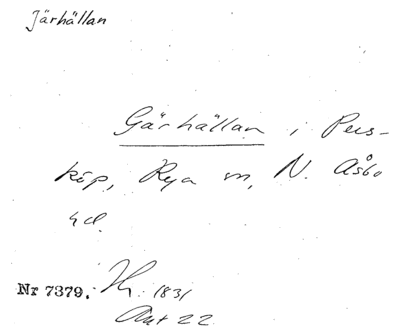 Järhällan
Gärhällan i Pers-
köp, Rya sn, N. Åsbo
hd.
Nr 7379. Hr. 1831
Akt 22